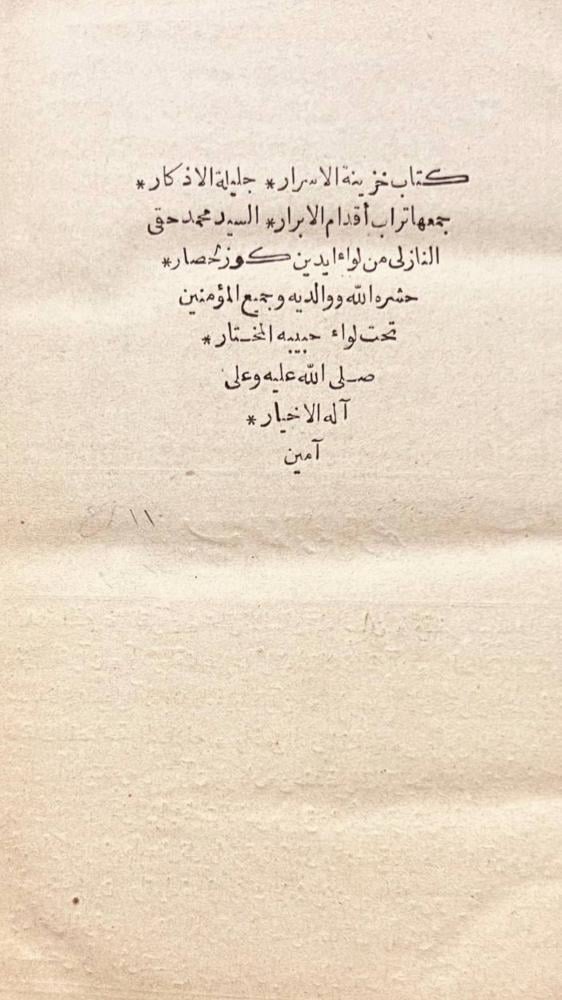 كتاب خزينة الاسرار * جليلة الاذكار *
جمعها تراب أقدام الابرار * السيد محمد حقى
النازلى من لواء ايدين كوزلحصار *
حشره الله ووالديه وجميع المؤمنين
تحت لواء حبيبه المختار *
صلى الله عليه وعلى
آله الاخيار *
آمين
١١٠